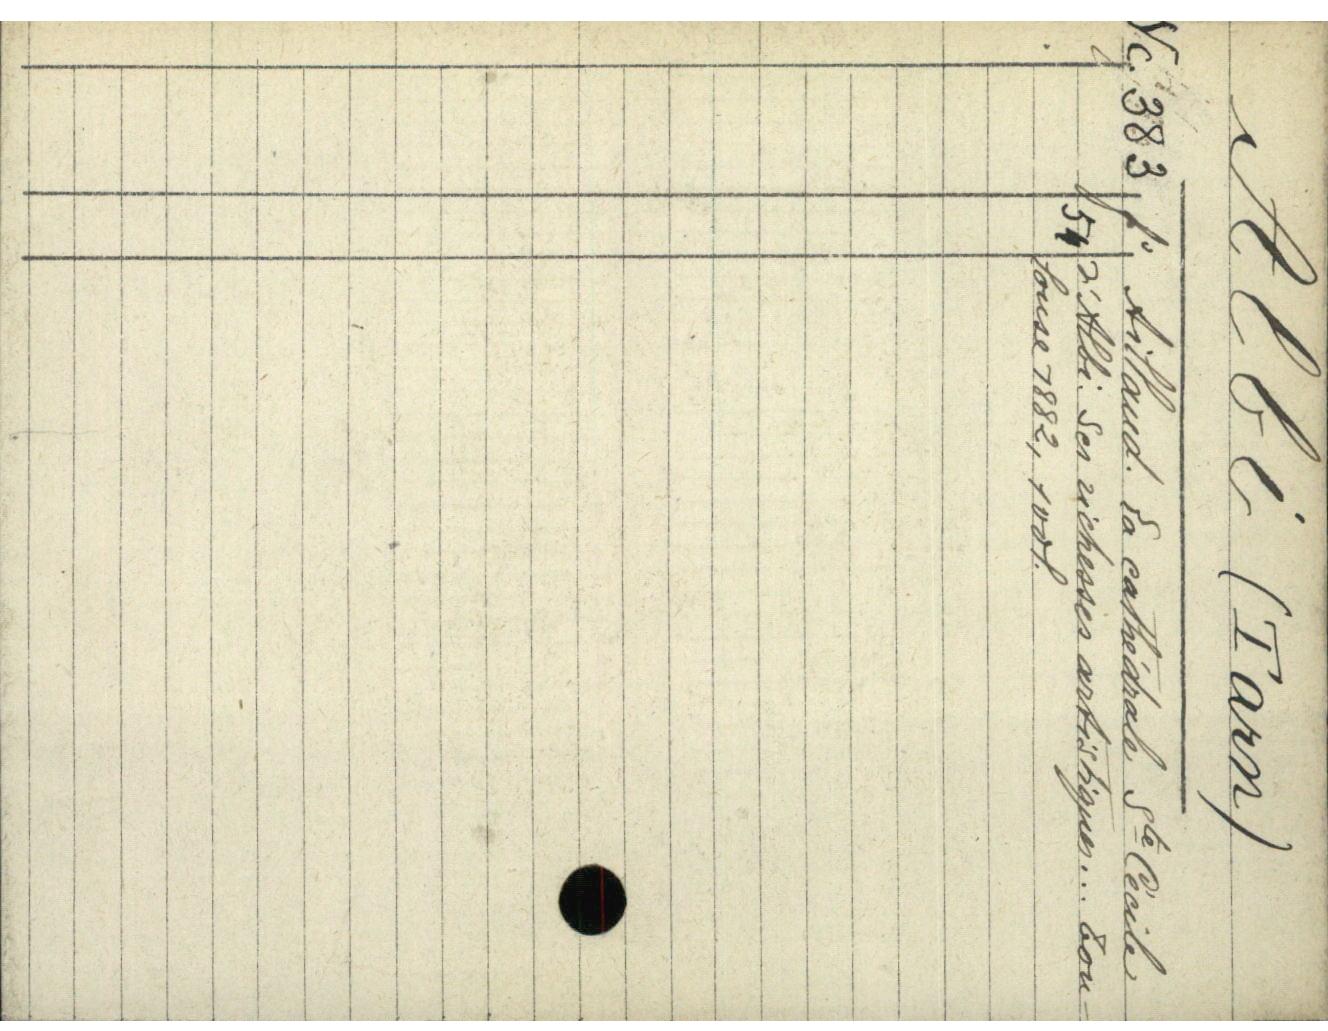 Albi (Tarn)
Vc. 383 fº Aillaud. La cathédrale Ste Cécile
54 d'Albi. Ses richesses artistiques... Tou-
louse 1882, 1 vol.